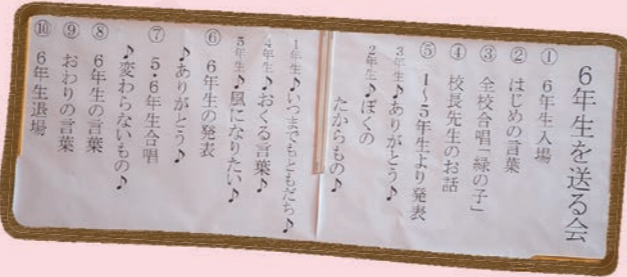 6年生を送る会
① 6年生入場
② はじめの言葉
③ 全校合唱「緑の子」
④ 校長先生のお話
⑤ 1~5年生より発表
3年生♪ありがとう♪
2年生♪ぼくの
たからもの♪
1年生♪いつまでもともだち♪
4年生♪おくる言葉♪
5年生♪風になりたい♪
⑥ 6年生の発表
♪ありがとう♪
⑦ 5・6年生合唱
♪変わらないもの♪
⑧ 6年生の言葉
⑨ おわりの言葉
⑩ 6年生退場